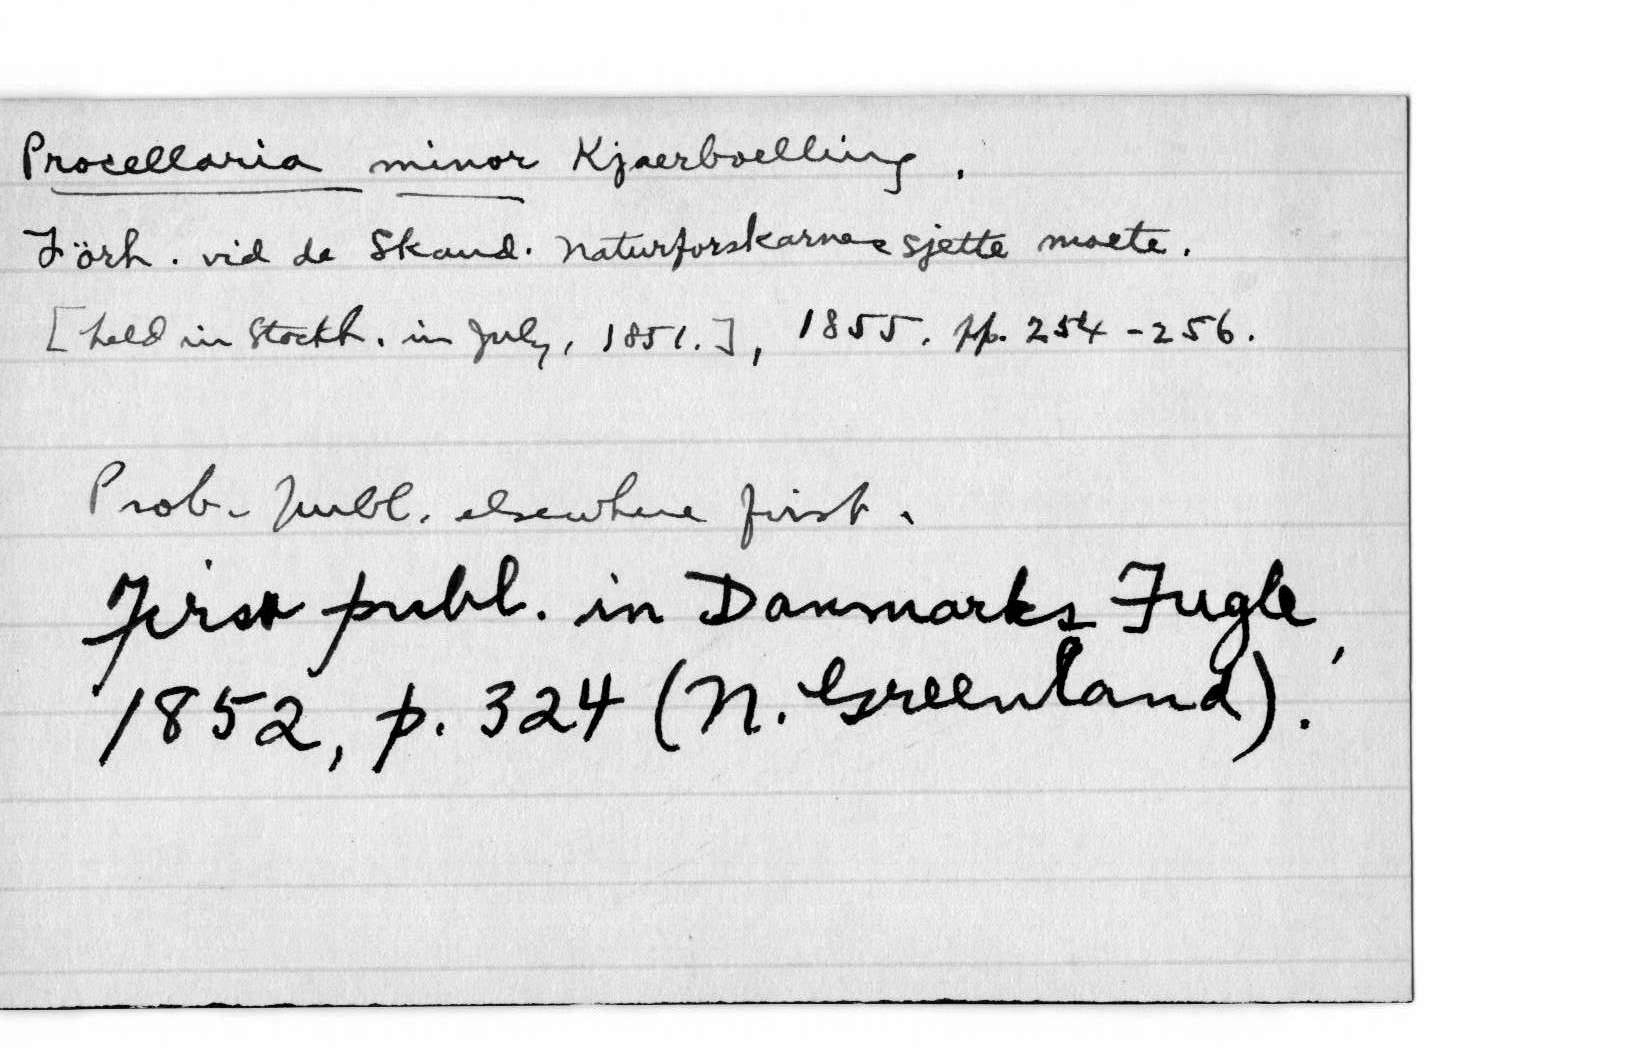 Procellaria minor Kjaerboelling.
Förh. vid de Skand. Naturforskarnes sjette moete.
[held in Stockh. in July, 1851.], 1855. pp. 254-256.
Prob. publ. elsewhere first.
First publ. in Danmarks Fugle,
1852, p. 324 (N. Greenland).